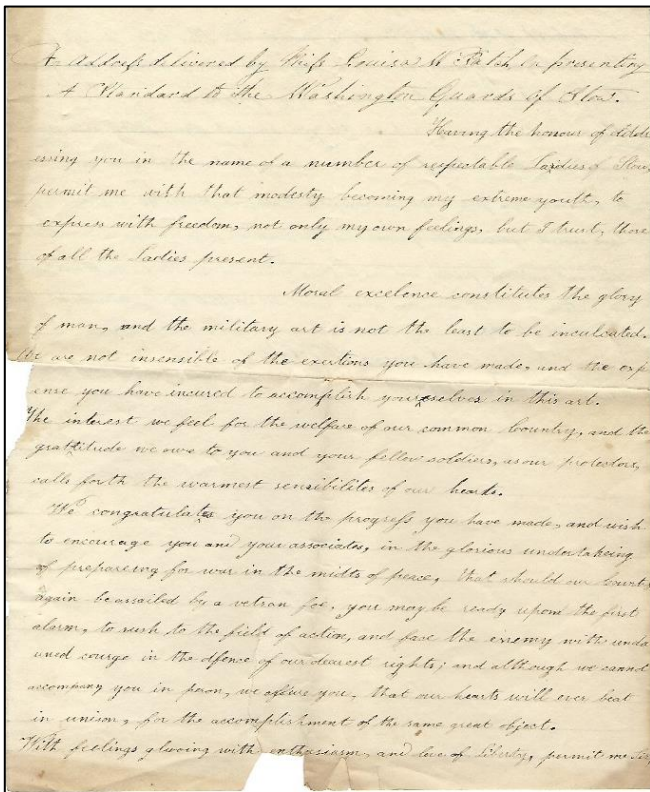 An Address delivered by Miss Louisa W Hatch on presenting
A Standard to the Washington Guards of Stow.
Having the honour of addr
essing you in the name of a number of respectable Laidies of Stow,
permit me with that modesty becoming my extreme youth, to
express with freedom, not only my own feelings, but I trust, those
of all the Ladies present.
Moral excelence constitutes the glory
of man, and the military art is not the least to be inculcated.
We are not insensible of the exertions you have made, and the exp
ense you have incured to accomplish yourselves in this art.
The interest we feel for the welfare of our common Country, and the
gratitude we owe to you and your fellow soldiers, as our protectors,
calls forth the warmest sensibilites of our hearts.
We congratulate you on the progress you have made, and wish
to encourage you and your associates, in the glorious undertakeing
of prepareing for war in the midts of peace, that should our Count
again be assailed by a vetran foe, you may be ready upon the first
alarm, to rush to the field of action, and face the enemy with unda
uned courge in the dfence of our dearest rights; and although we cannot
accompany you in peron, we assure you, that our hearts will ever beat
in unison, for the accomplishment of the same great object.
With feelings glowing with enthusiasm, and love of Liberty, permit me Sir,